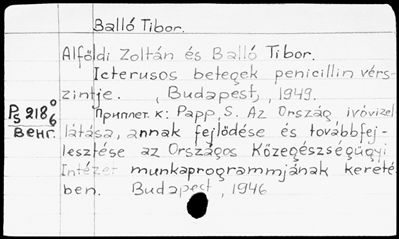 Balló Tibor.
Alföldi Zoltán és Balló Tibor.
Icterusos betegek penicillin vérs-
zintje. , Budapest, , 1949.
Приплет. к: Papp, S. Az Ország ivóvizel
látása, annak fejlődése és továbbfej-
lesztése az Országos Közegészségügyi
Intézet munkaprogrammjának kereté-
ben. Budapest, 1946
P 218 0
S 6
Венг.